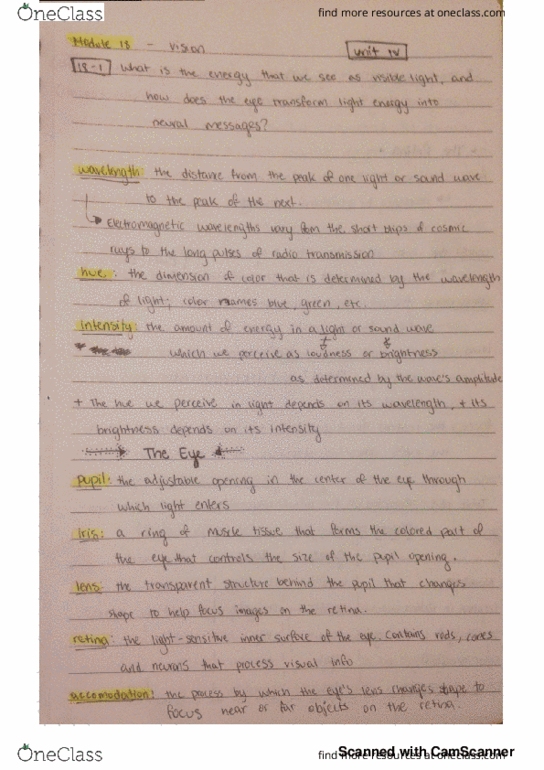 OneClass
find more resources at oneclass.com
Module 18 - vision
unit IV
18-1 What is the energy that we see as visible light, and
how does the eye transform light energy into
neural messages?
wavelength: the distance from the peak of one light or sound wave
to the peak of the next.
Electromagnetic wavelengths vary from the short blips of cosmic
rays to the long pulses of radio transmission
hue: the dimension of color that is determined by the wavelength
of light; color names blue, green, etc.
Intensity: the amount of energy in a light or sound wave
which we perceive as loudness or brightness
as determined by the wave's amplitude
+ The hue we perceive in light depends on its wavelength, + its
brightness depends on its intensity
The Eye
pupil: the adjustable opening in the center of the eye through
which light enters
Iris: a ring of muscle tissue that forms the colored part of
the eye that controls the size of the pupil opening.
lens: the transparent structure behind the pupil that changes
shape to help focus images on the retina.
retina: the light-sensitive inner surface of the eye. contains rods, cones
and neurons that process visual info
accomodation: the process by which the eye's lens changes shape to
focus near or far objects on the retina.
OneClass
find more resources at oneclass.com
Scanned with CamScanner